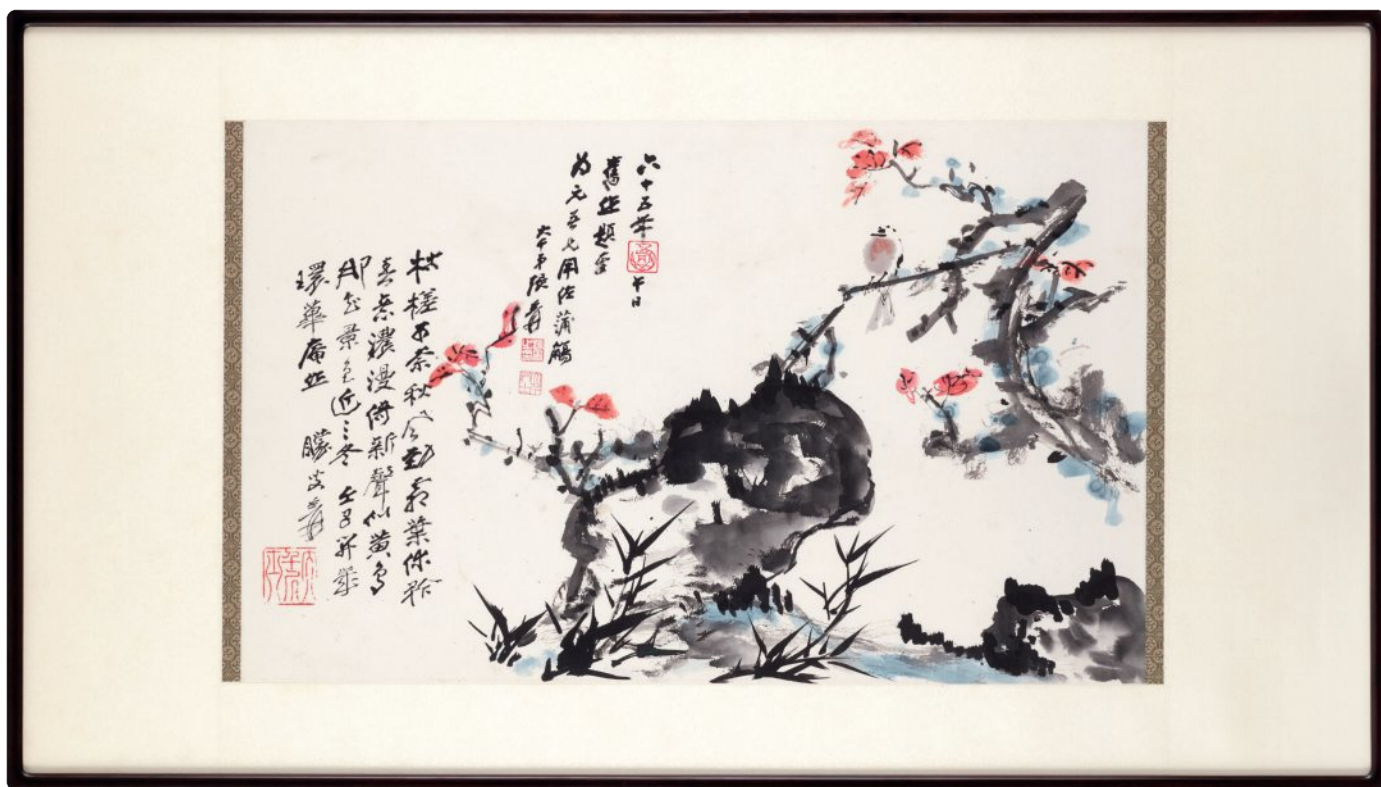 六十五年午日
舊作題
為元吾兄用佐蒲觴
大千弟張爰
不奈秋風勁霜葉休矜
濃漫倚新聲似黃鳥
那知景色近三冬 壬子
環蓽庵作 爰